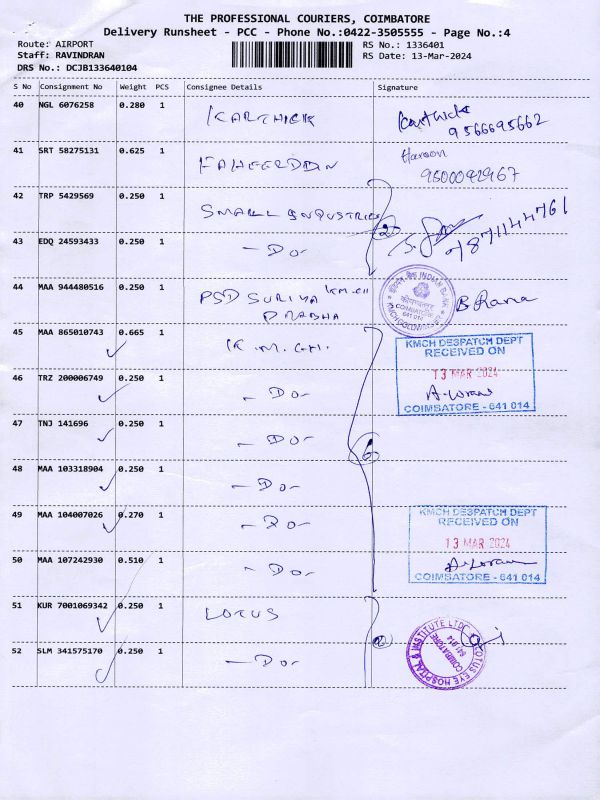 THE PROFESSIONAL COURIERS, COIMBATORE
Delivery Runsheet - PCC - Phone No.:0422-3505555 - Page No.:4
Route: AIRPORT
RS No.: 1336401
Staff: RAVINDRAN
RS Date: 13-Mar-2024
DRS No.: DCJB133640104
S No Consignment No Weight PCS Consignee Details Signature
40 NGL 6076258 0.280 1 KARTHICK Karthick
9566695662
41 SRT 58275131 0.625 1 FAHEERDDIN Haroon
9500092967
42 TRP 5429569 0.250 1 SMALL INDUSTRIES 2
97871144761
43 EDQ 24593433 0.250 1 - Do -
44 MAA 944480516 0.250 1 PSD SURIYA KMCH B Rama
PRABHA
INDIAN BANK
COIMBATORE
641 014
45 MAA 865010743 0.665 1 K.M.C.H.
KMCH DESPATCH DEPT
RECEIVED ON
13 MAR 2024
COIMBATORE - 641 014
46 TRZ 200006749 0.250 1 - Do -
47 TNJ 141696 0.250 1 - Do -
6
48 MAA 103318904 0.250 1 - Do -
49 MAA 104007026 0.270 1 - Do -
KMCH DESPATCH DEPT
RECEIVED ON
13 MAR 2024
COIMBATORE - 641 014
50 MAA 107242930 0.510 1 - Do -
51 KUR 7001069342 0.250 1 LOTUS
2
52 SLM 341575170 0.250 1 - Do -
LOTUS EYE HOSPITAL & INSTITUTE LTD
COIMBATORE
641 014